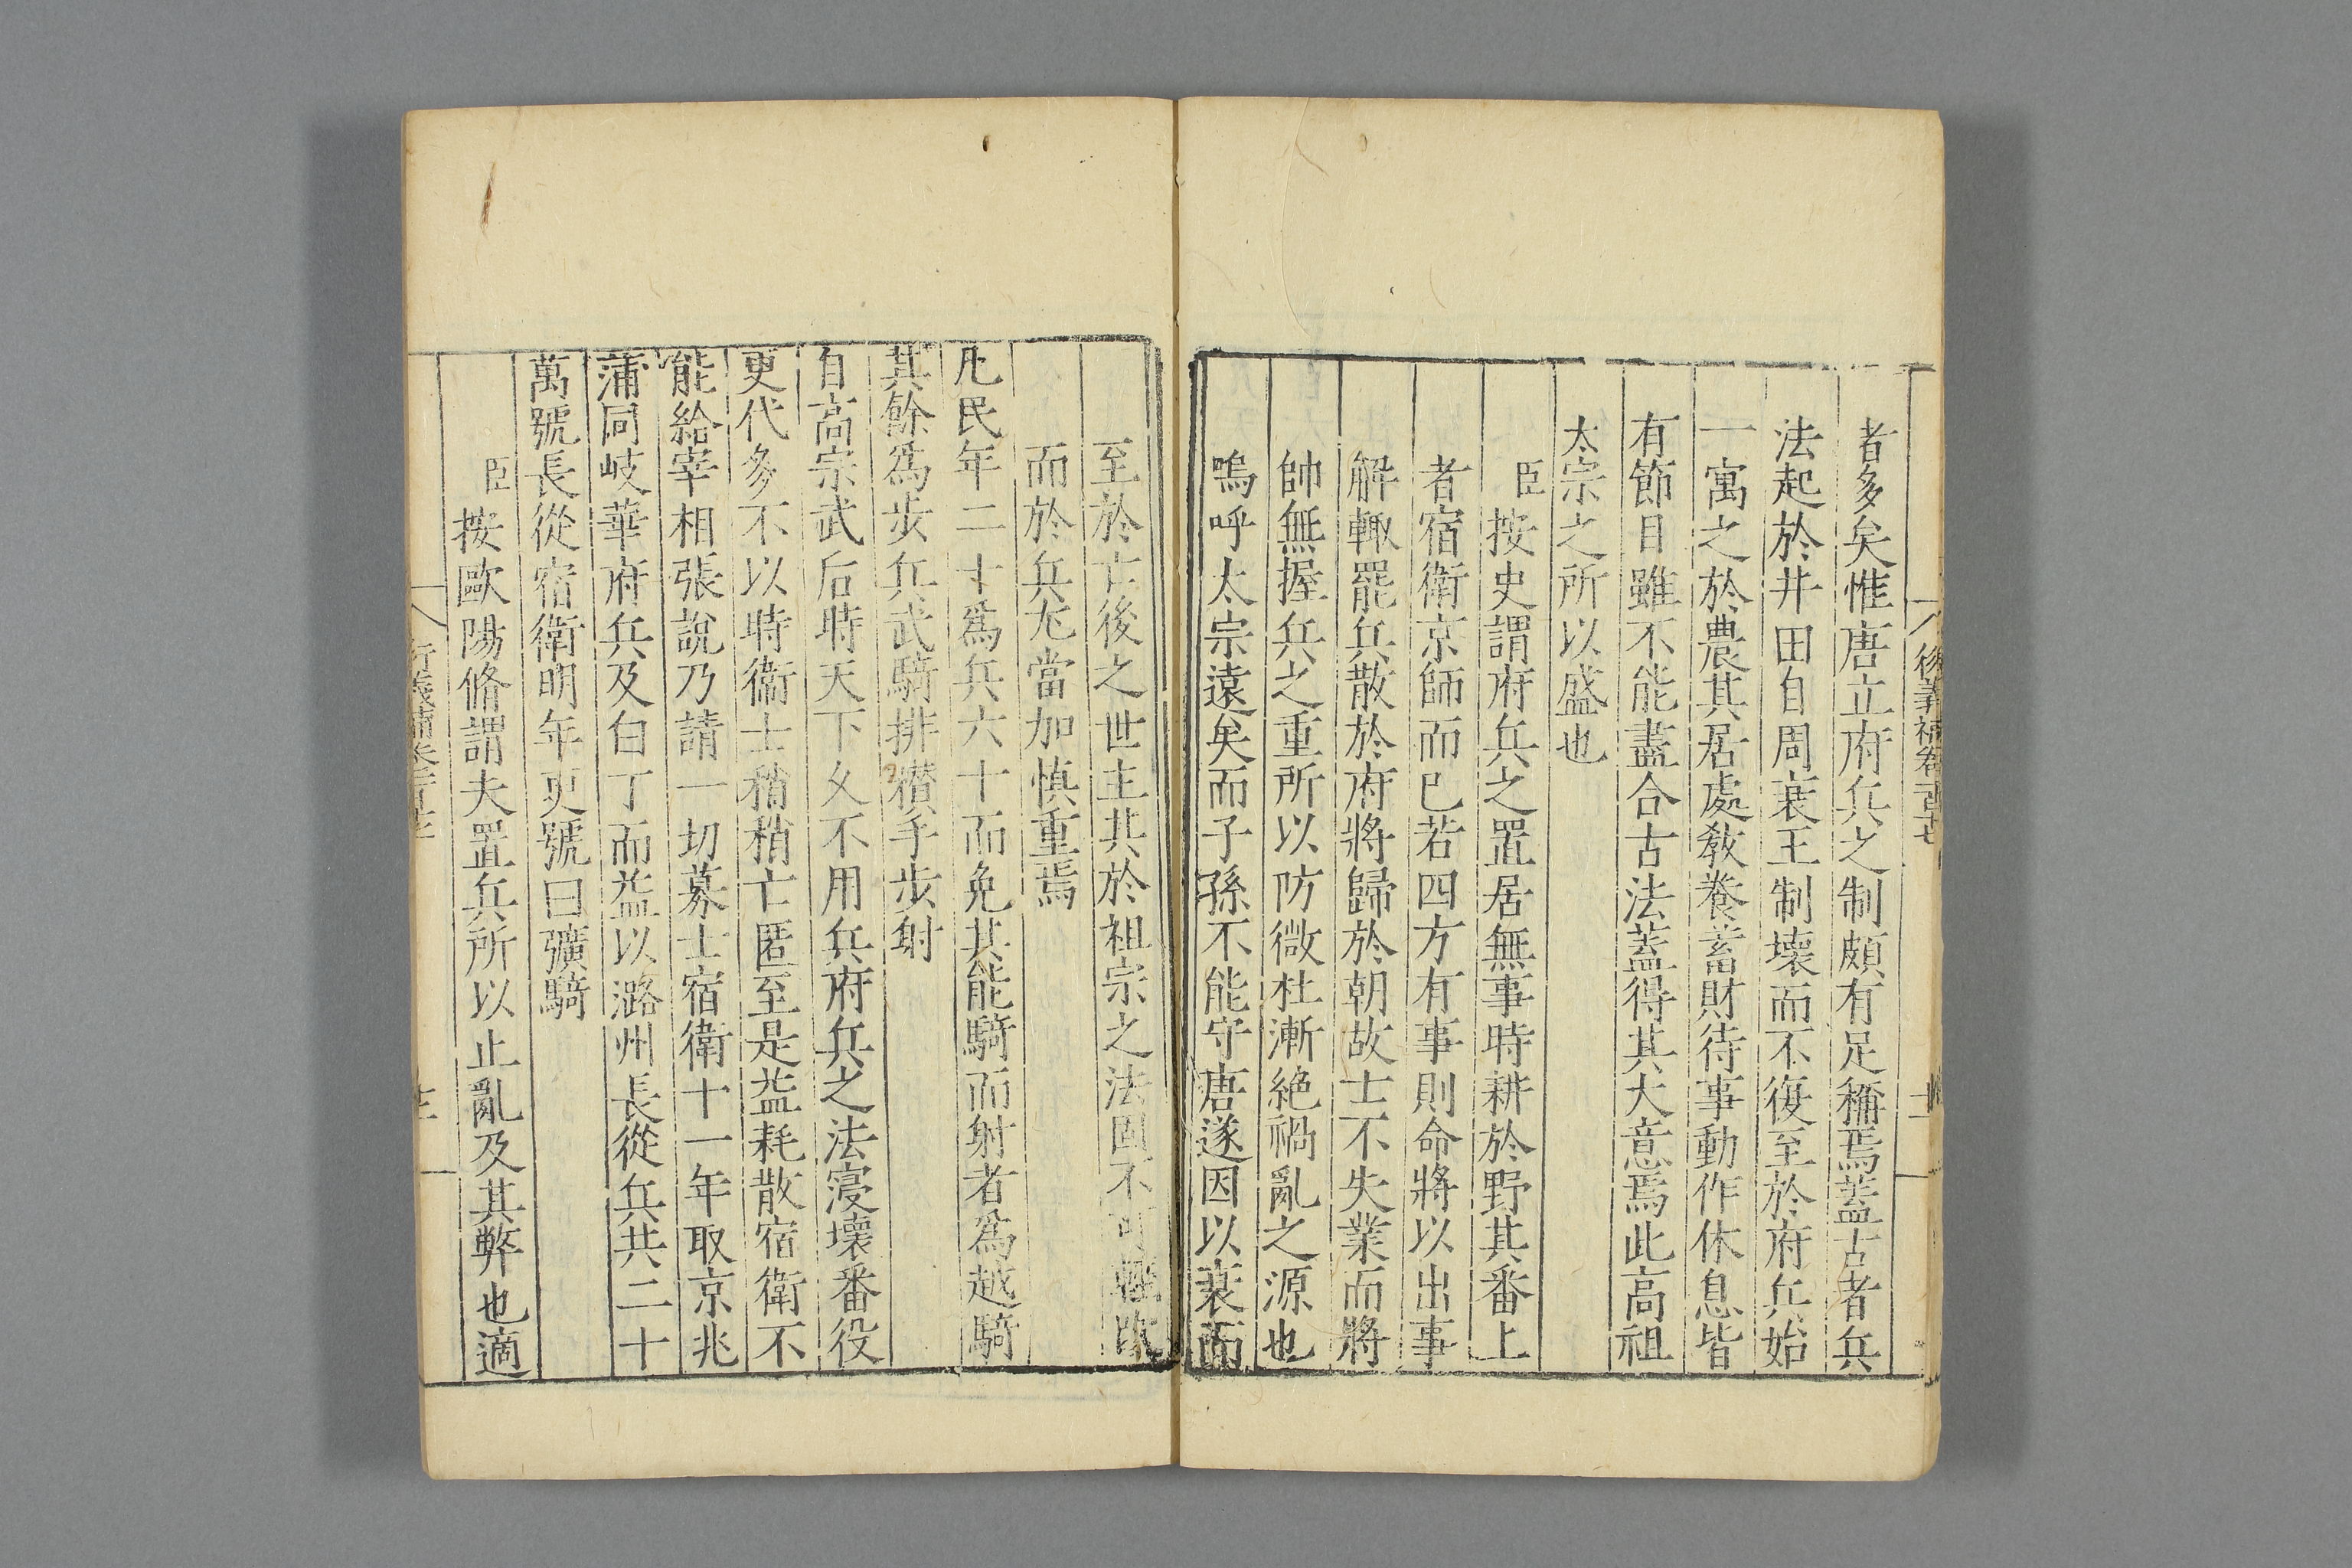 者多矣惟唐立府兵之制頗有足稱焉蓋古者兵
法起於井田自周衰王制壞而不復至於府兵始
一寓之於農其居處教養蓄財待事動作休息皆
有節目雖不能盡合古法蓋得其大意焉此高祖
太宗之所以盛也
臣按史謂府兵之置居無事時耕於野其番上
者宿衛京師而已若四方有事則命將以出事
解輙罷兵散於府將歸於朝故士不失業而將
帥無握兵之重所以防微杜漸絶禍亂之源也
嗚呼太宗遠矣而子孫不能守唐遂因以衰而
至於亡後之世主其於祖宗之法固不可輕改
而於兵尤當加慎重焉
凡民年二十爲兵六十而免其能騎而射者爲越騎
其餘爲步兵武騎排䂎手步射
自高宗武后時天下久不用兵府兵之法寖壞番役
更代多不以時衞士稍稍亡匿至是益耗散宿衛不
能給宰相張說乃請一切募士宿衛十一年取京兆
蒲同岐華府兵及白丁而益以潞州長從兵共二十
萬號長從宿衛明年更號曰彍騎
臣按歐陽脩謂夫置兵所以止亂及其弊也適